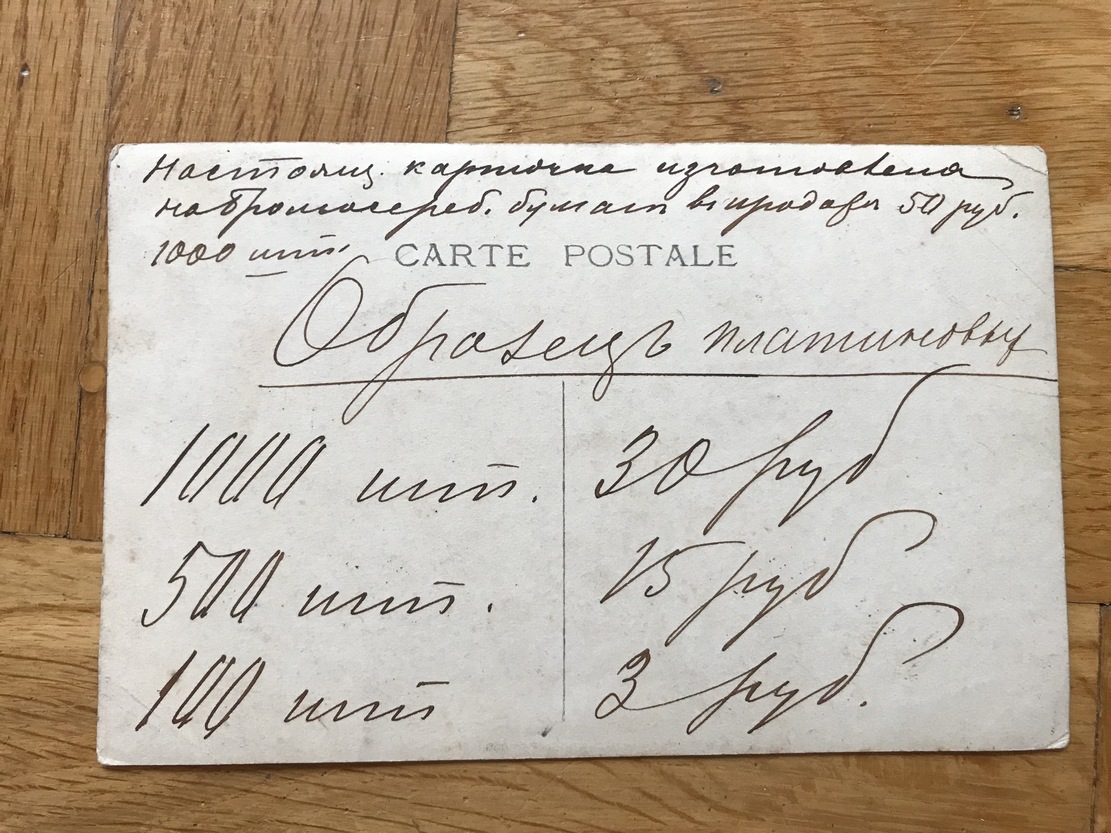 Настоящ. карточка изготовлена
на бромосереб. бумагѣ въ продажѣ 50 руб.
1000 шт.
CARTE POSTALE
Образецъ платиновых
1000 шт. 30 руб
500 шт. 15 руб
100 шт 3 руб.